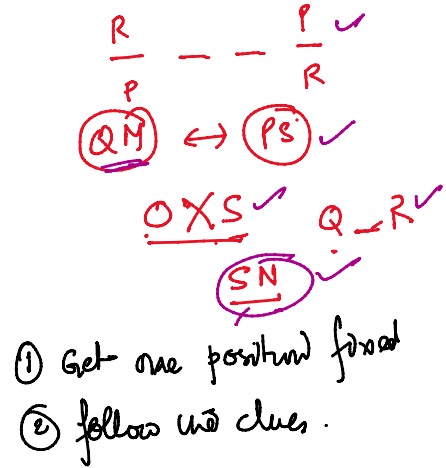 R _ _ _ P ✓
P R
QM ↔ PS ✓
OXS ✓
Q _ R ✓
SN ✓
① Get one position fixed
② follow the clues.